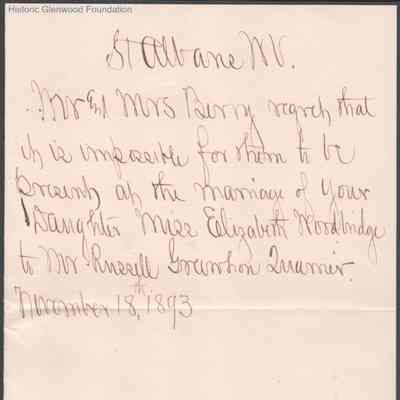 Historic Glenwood Foundation
St Albans WV.
Mr and Mrs Berry regret that
it is impossible for them to be
present at the marriage of your
Daughter Miss Elizabeth Woodbridge
to Mr Russell Quarrier.
November 18,th 1893